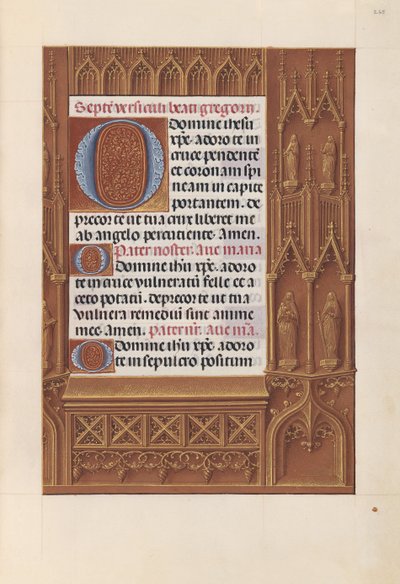 265
Septē versiculi beati gregorii
O Domine ihesu
xp̄e adoro te in
cruce pendentē
et coronam spi
neam in capite
portantem. de
precor te ut tua crux liberet me
ab angelo percutiente. Amen.
Pater noster. Aue maria
O Domine ih̄u xp̄e adoro
te in cruce vulneratū felle et a
ceto potatū. deprecor te ut tua
vulnera remediū sint anime
mee. Amen. Pater nr̄. aue mā.
O Domine ih̄u xp̄e adoro
te in sepulcro positum